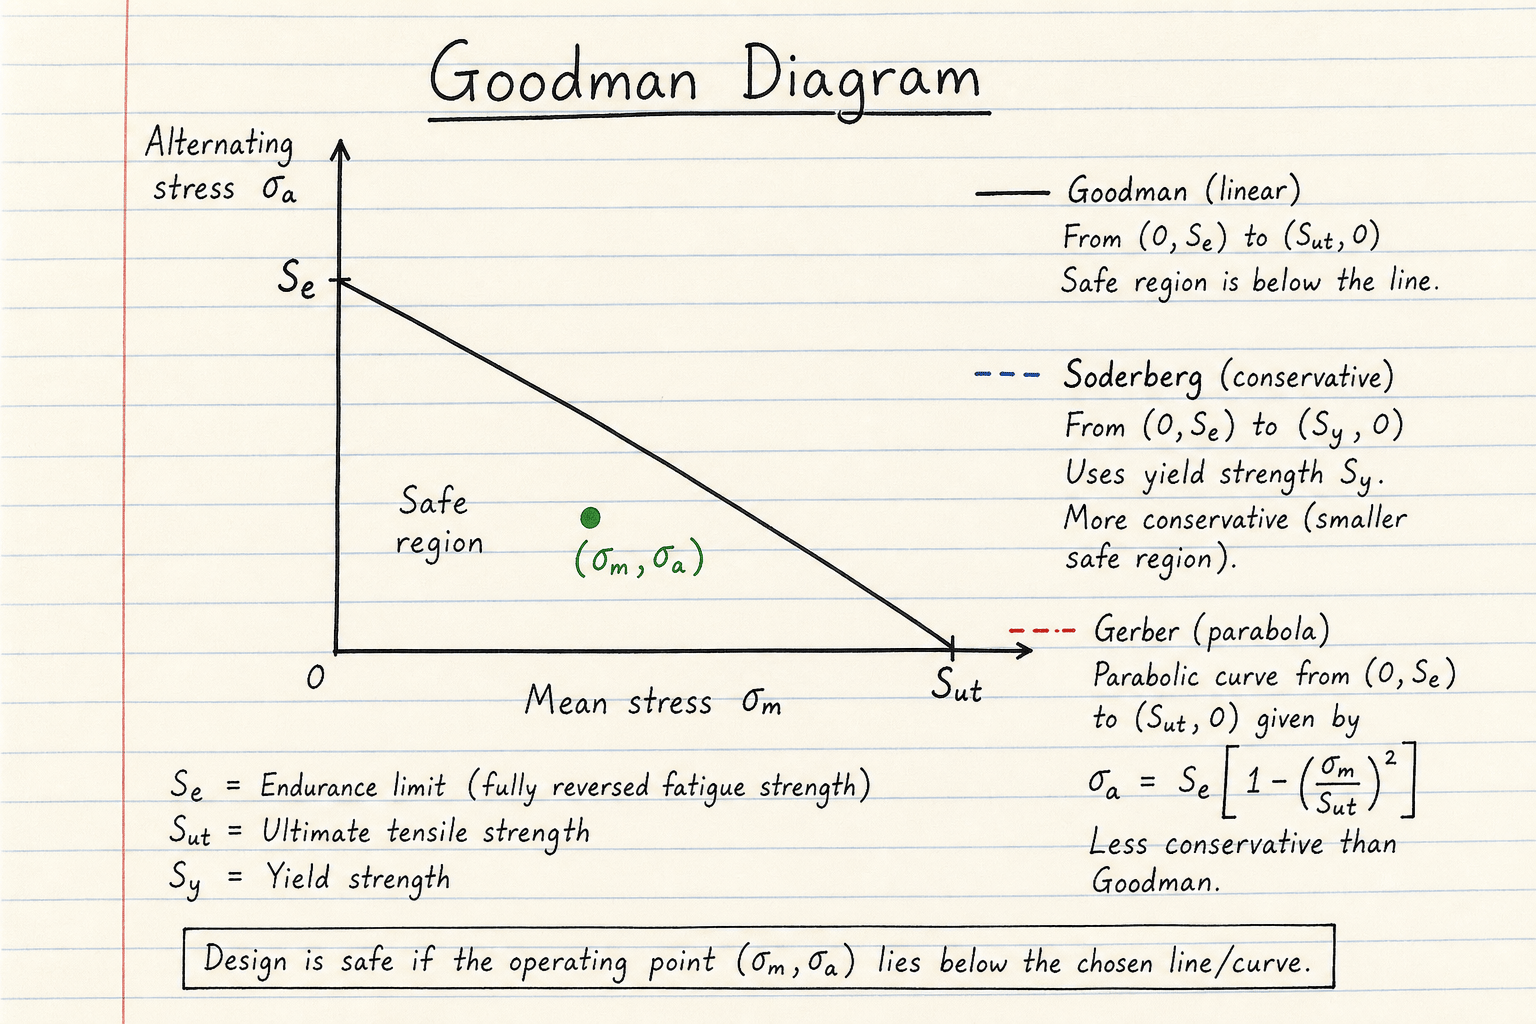 Goodman Diagram
Alternating
stress σₐ
Sₑ
Safe
region
(σₘ, σₐ)
0
Mean stress σₘ
Sᵤₜ
Goodman (linear)
From (0, Sₑ) to (Sᵤₜ, 0)
Safe region is below the line.
Soderberg (conservative)
From (0, Sₑ) to (Sy, 0)
Uses yield strength Sy.
More conservative (smaller
safe region).
Gerber (parabola)
Parabolic curve from (0, Sₑ)
to (Sᵤₜ, 0) given by
σₐ = Sₑ [1 - (σₘ/Sᵤₜ)²]
Less conservative than
Goodman.
Sₑ = Endurance limit (fully reversed fatigue strength)
Sᵤₜ = Ultimate tensile strength
Sy = Yield strength
Design is safe if the operating point (σₘ, σₐ) lies below the chosen line/curve.